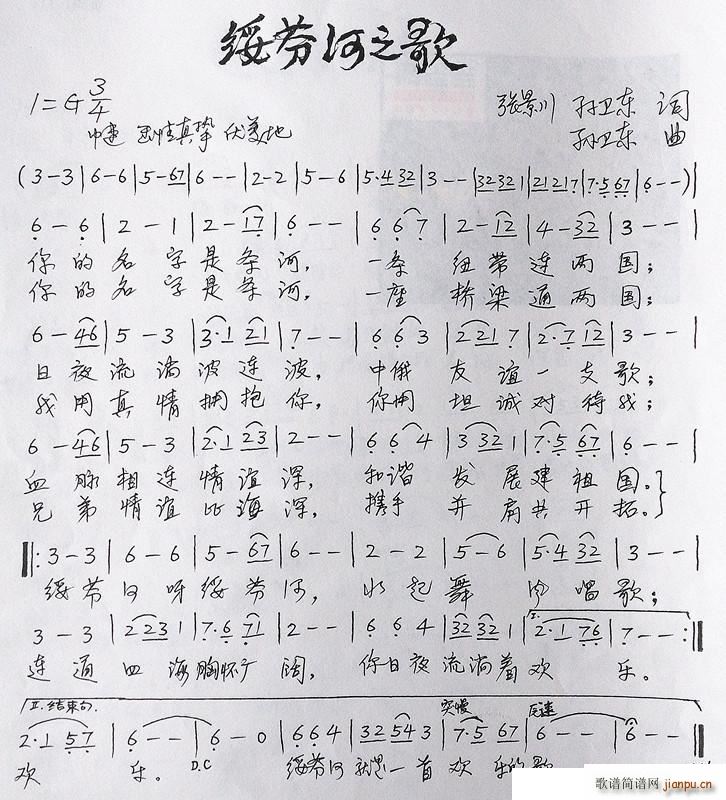 绥芬河之歌
1=G 3/4
中速 真挚 优美地
张景川 孙卫东 词
孙卫东 曲
(3-3|6-6|5-67|6--|2-2|5-6|5·432|3--|32321|21217|7·567|6--)|
6-6|2-1|2-17|6--|667|2-12|4-32|3--|
你的名字是条河，一条纽带连两国；
你的名字是条河，一座桥梁通两国；
6-46|5-3|3·121|7--|663|2217|2·712|3--|
日夜流淌波连波，中俄友谊一支歌；
我用真情拥抱你，你用坦诚对待我；
6-46|5-3|2·123|2--|664|3321|7·567|6--|
血脉相连情谊深，和谐发展建祖国。
兄弟情谊比海深，携手并肩共开拓。
‖:3-3|6-6|5-67|6--|2-2|5-6|5·432|3--|
绥芬河呀绥芬河，水起舞 唱歌；
3-3|2231|7·671|2--|664|32321|I.2·176|7--:‖
连通四海胸怀广阔，你日夜流淌着欢乐。
II.结束句. 突慢 反速
2·157|6--|6-0|664|32543|7·567|6--|6--‖
欢乐。D.C 绥芬河就是一首欢乐的歌
歌谱简谱网
jianpu.cn